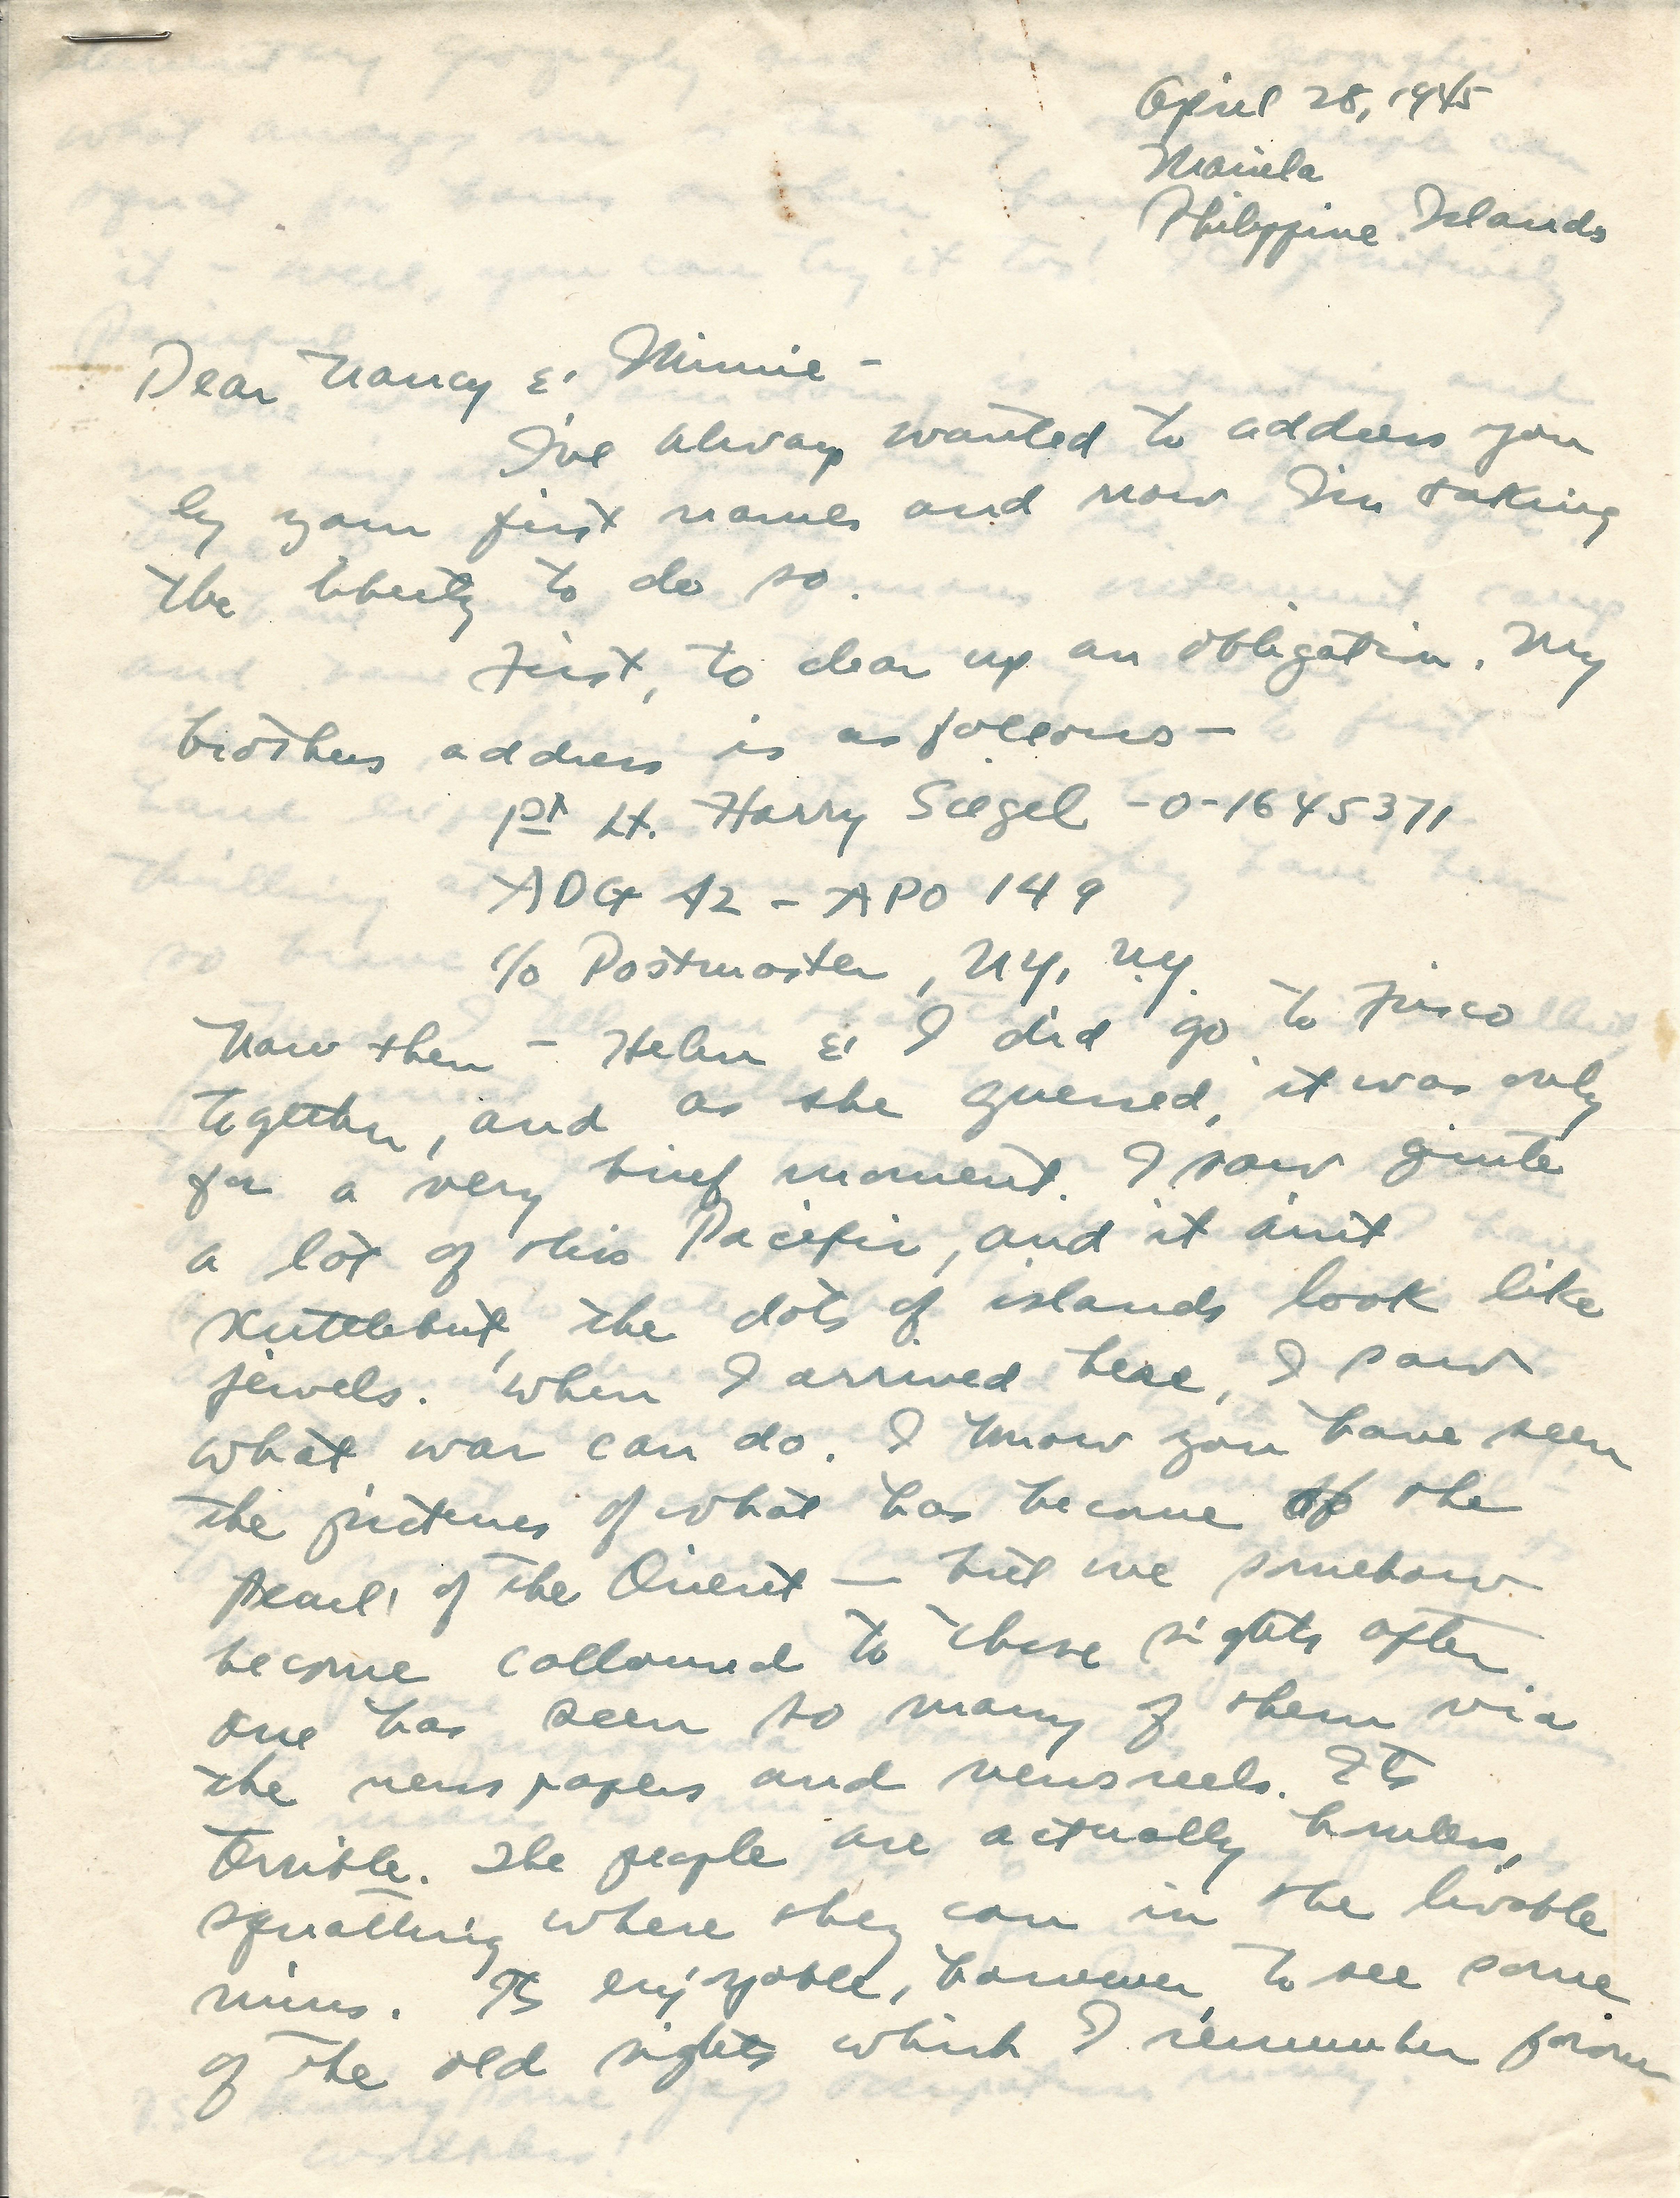 April 28, 1945
Manila
Philippine Islands
Dear Nancy & Minnie -
I've always wanted to address you
by your first names and now I'm taking
the liberty to do so.
First, to clear up an obligation. My
brothers address is as follows -
1st Lt. Harry Siegel - O-1645371
ADG #2 - APO 149
c/o Postmaster, N.Y., N.Y.
Now then - Helen & I did go to Frisco
together, and as she guessed, it was only
for a very brief moment. I saw quite
a lot of this Pacific, and it ain't
scuttlebut, the dots of islands look like
jewels. When I arrived here, I saw
what war can do. I know you have seen
the pictures of what has become of the
'Pearl' of the Orient — but we somehow
become calloused to these sights after
one has seen so many of them via
the newspapers and newsreels. Its
terrible. The people are actually homeless,
squatting where they can in the livable
ruins. Its enjoyable, however, to see some
of the old sights which I remember from